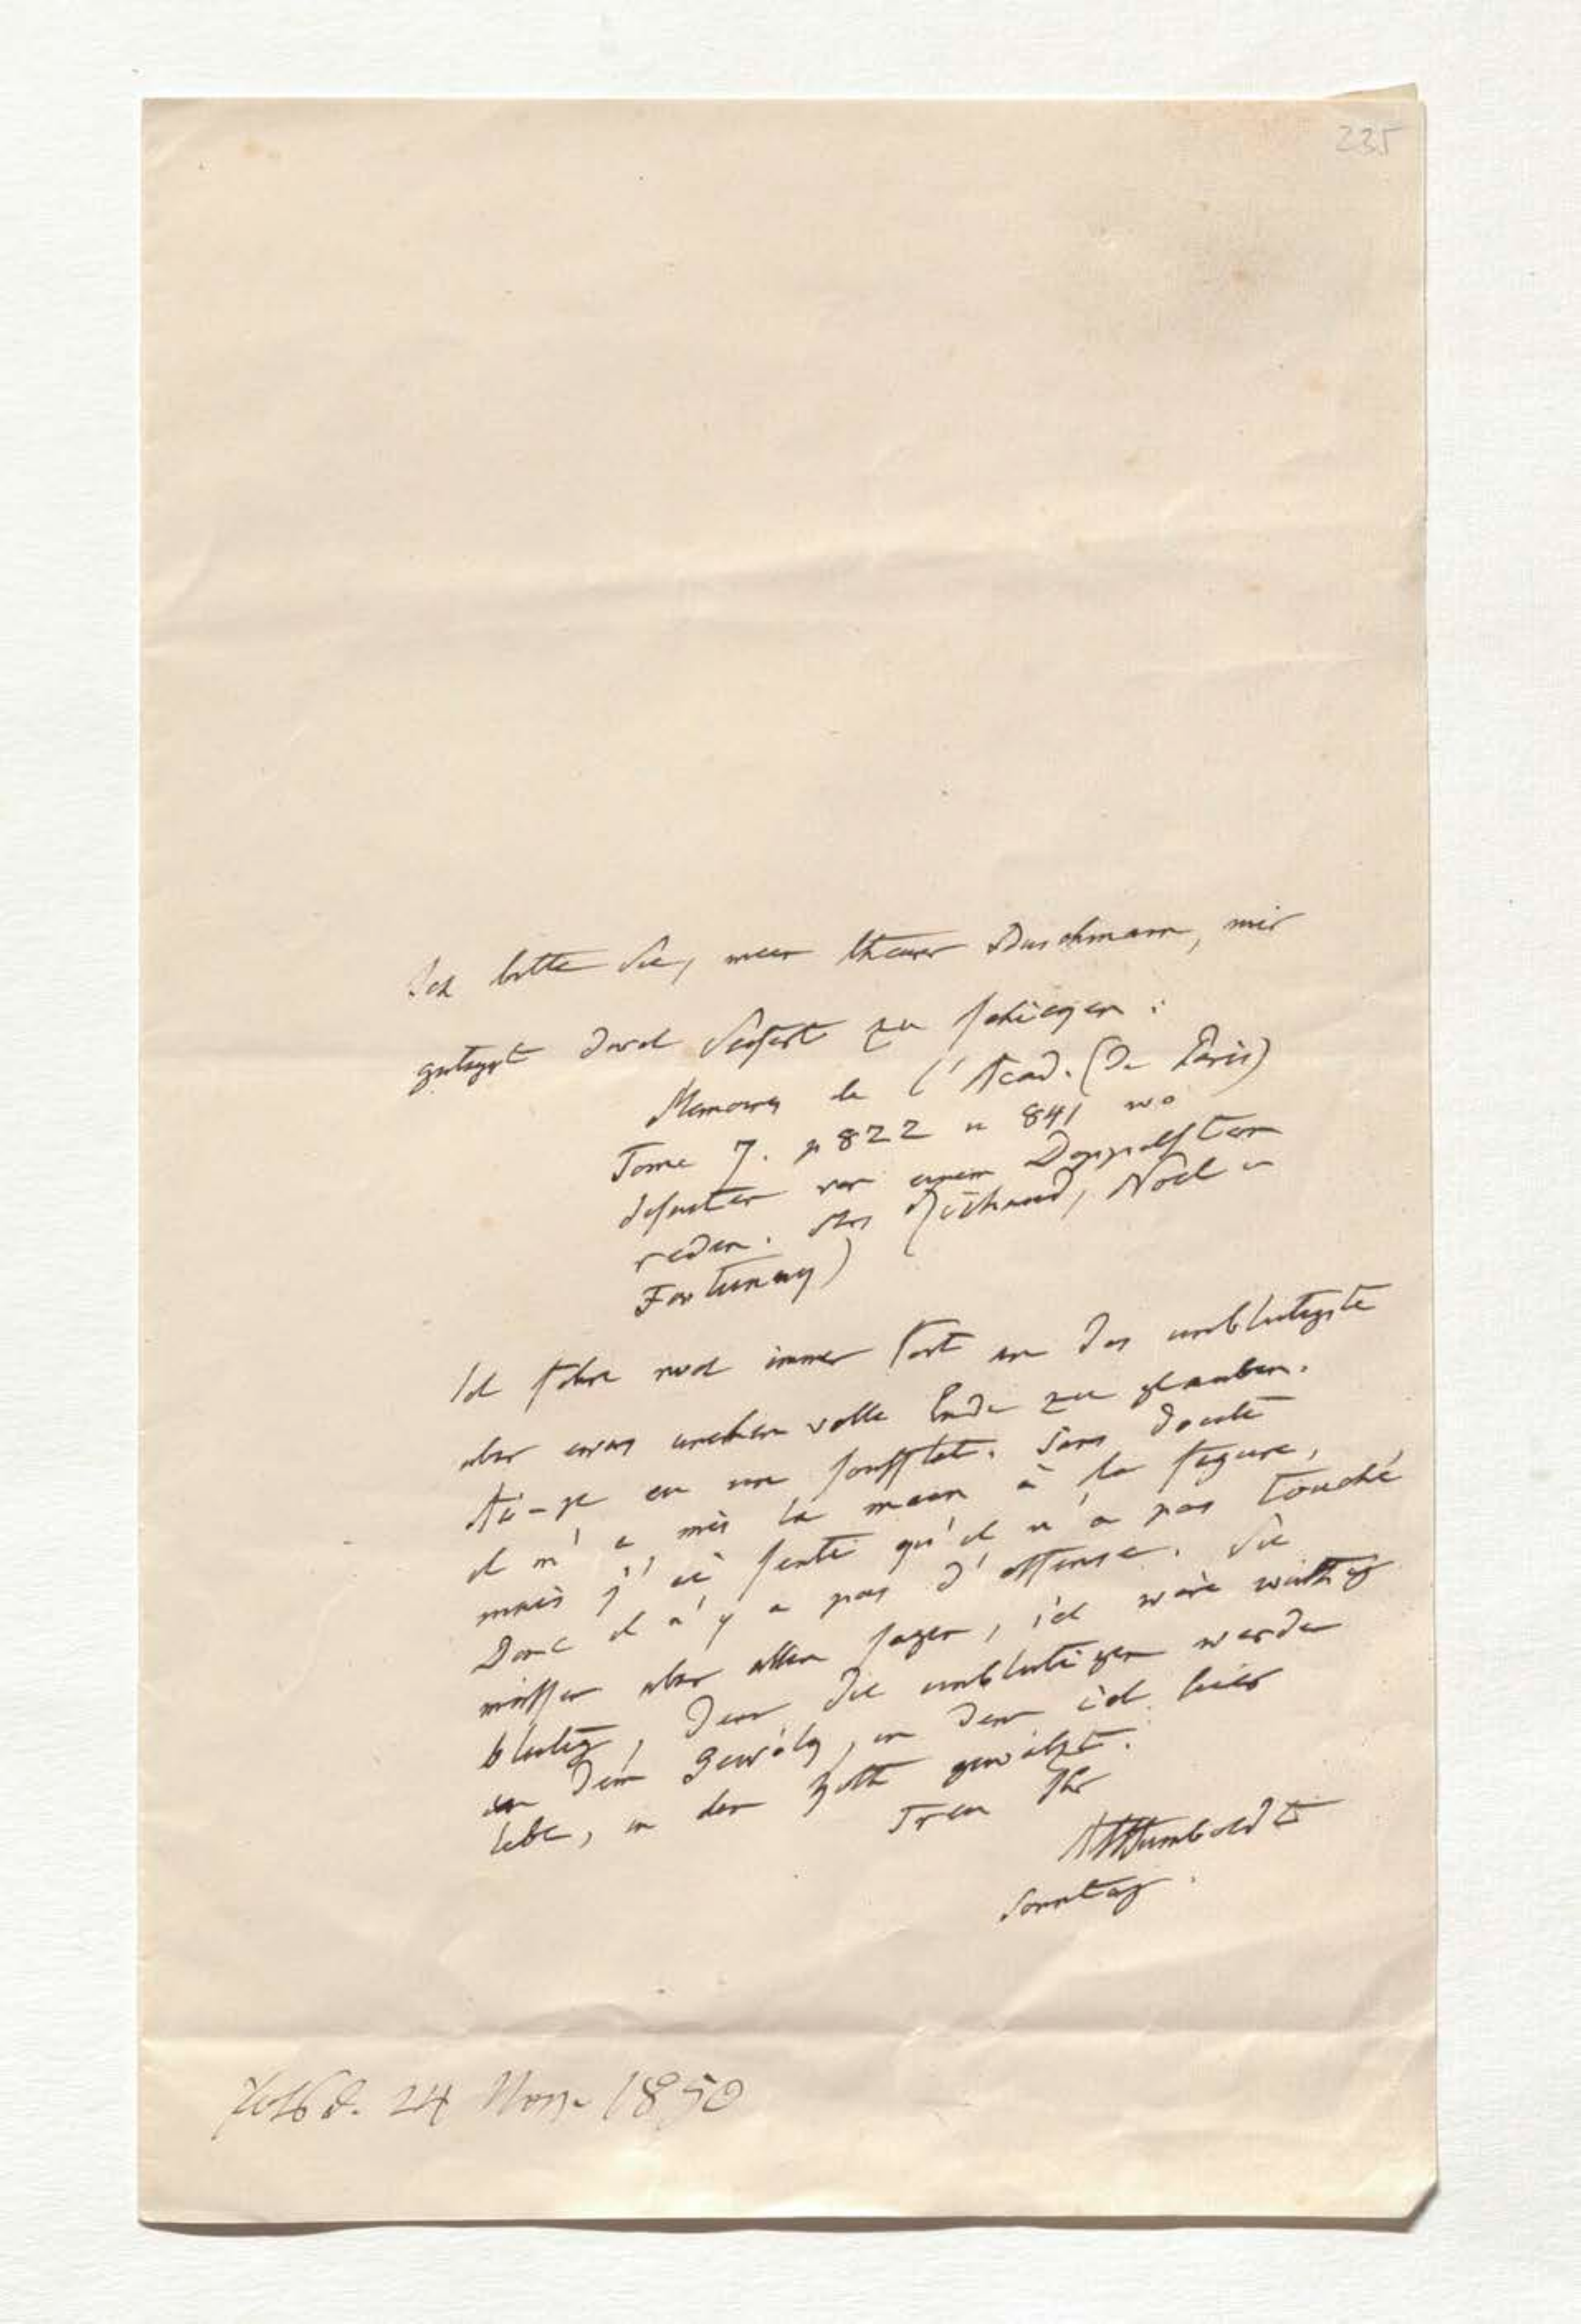 235
Ich bitte Sie, mein theurer Buschmann, mir
gütigst durch Seifert zu schicken:
Memoires de l'Acad. (de Paris)
Tome 7. p 822 u 841 wo
Jesuiten von einem Doppelstern
reden. (Richaud, Noel u
Fontenay)
Ich fahre noch immer fort an das unblutigste
aber ehren volle Ende zu glauben.
Ai-je eu un soufflet. Sans doute
il m'a mis la main à la figure,
mais j'ai senti qu'il n'a pas touché
Donc il n'y a pas d'offense. Sie
müssen aber allen sagen, ich wäre wüthig
blutig, denn die unblutigen werden
in dem Gewölk, in dem ich hier
lebe, in den Koth gewälzt.
Treu Ihr
AvHumboldt
Sonntag.
24 Nov. 1850